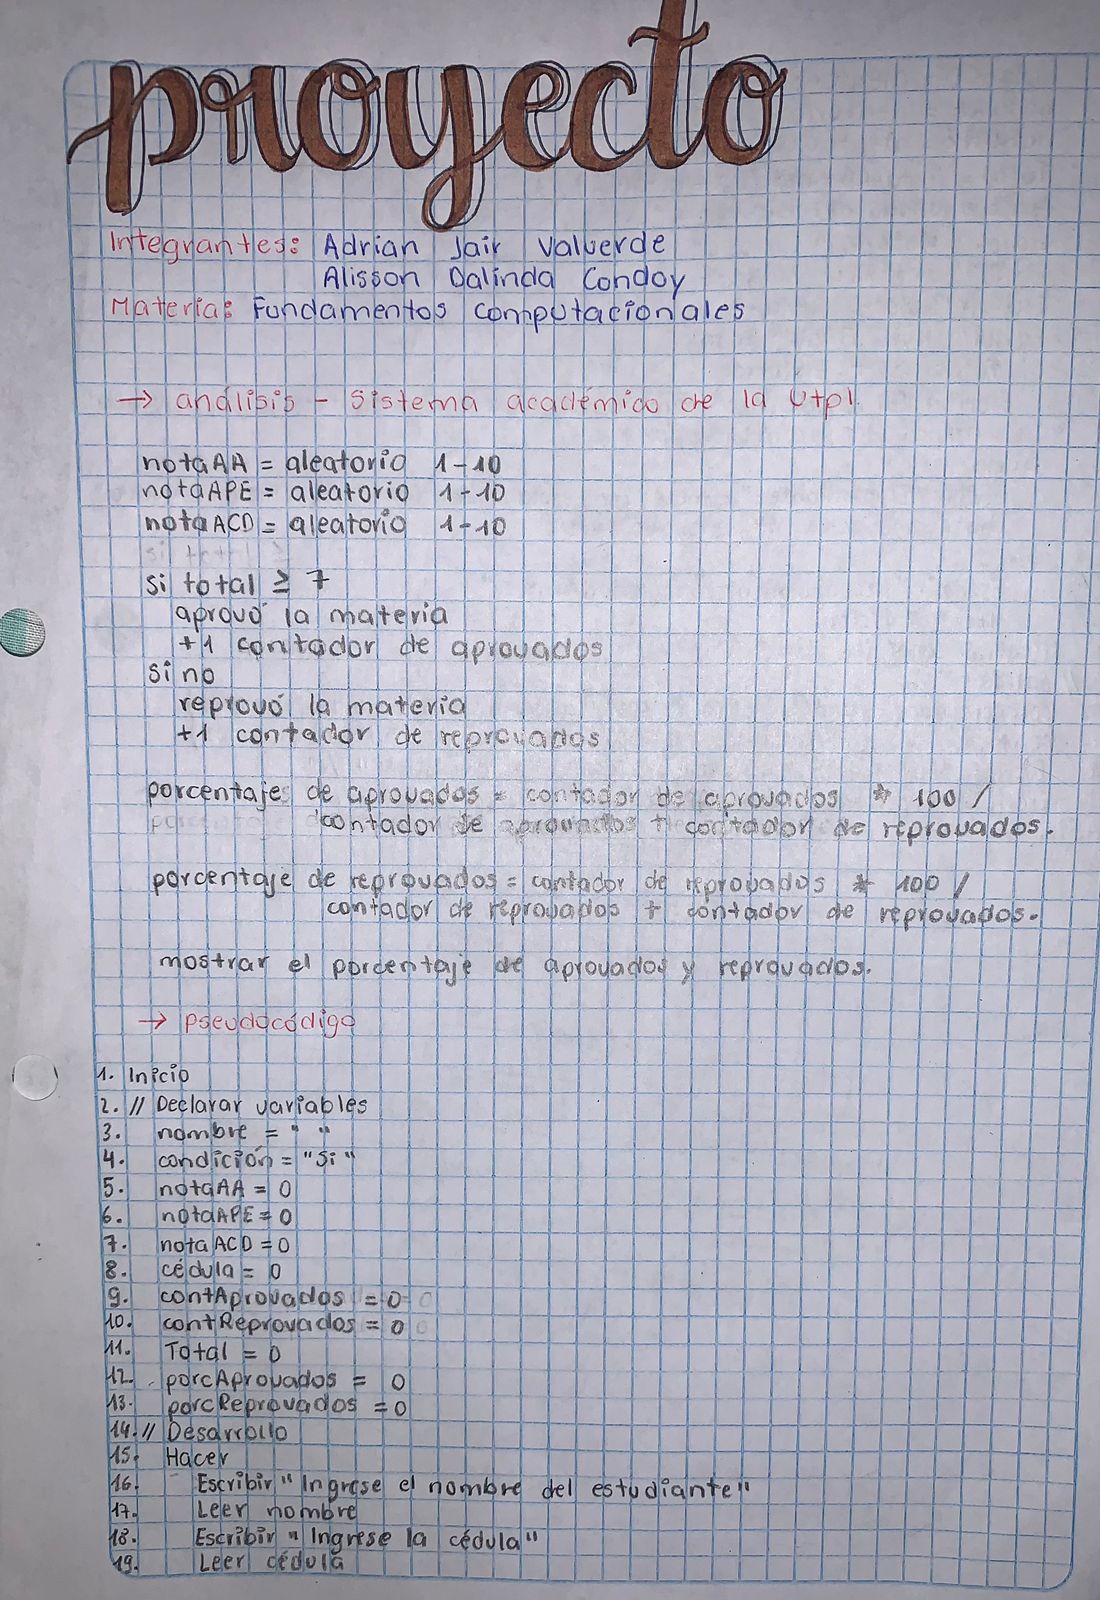 proyecto
Integrantes: Adrian Jair Valverde
Alisson Dalinda Condoy
Materia: Fundamentos computacionales
→ análisis - Sistema académico de la Utpl.
notaAA = aleatorio 1-10
notaAPE = aleatorio 1-10
notaACD = aleatorio 1-10
si total ≥ 7
aprovó la materia
+1 contador de aprovados
si no
reprovó la materia
+1 contador de reprovados
porcentaje de aprovados = contador de aprovados * 100 /
contador de aprovados + contador de reprovados.
porcentaje de reprovados = contador de reprovados * 100 /
contador de reprovados + contador de reprovados.
mostrar el porcentaje de aprovados y reprovados.
→ pseudocódigo
1. Inicio
2. // Declarar variables
3. nombre = " "
4. condición = "Si"
5. notaAA = 0
6. notaAPE = 0
7. notaACD = 0
8. cédula = 0
9. contAprovados = 0
10. contReprovados = 0
11. Total = 0
12. porcAprovados = 0
13. porcReprovados = 0
14. // Desarrollo
15. Hacer
16. Escribir "Ingrese el nombre del estudiante"
17. Leer nombre
18. Escribir "Ingrese la cédula"
19. Leer cédula